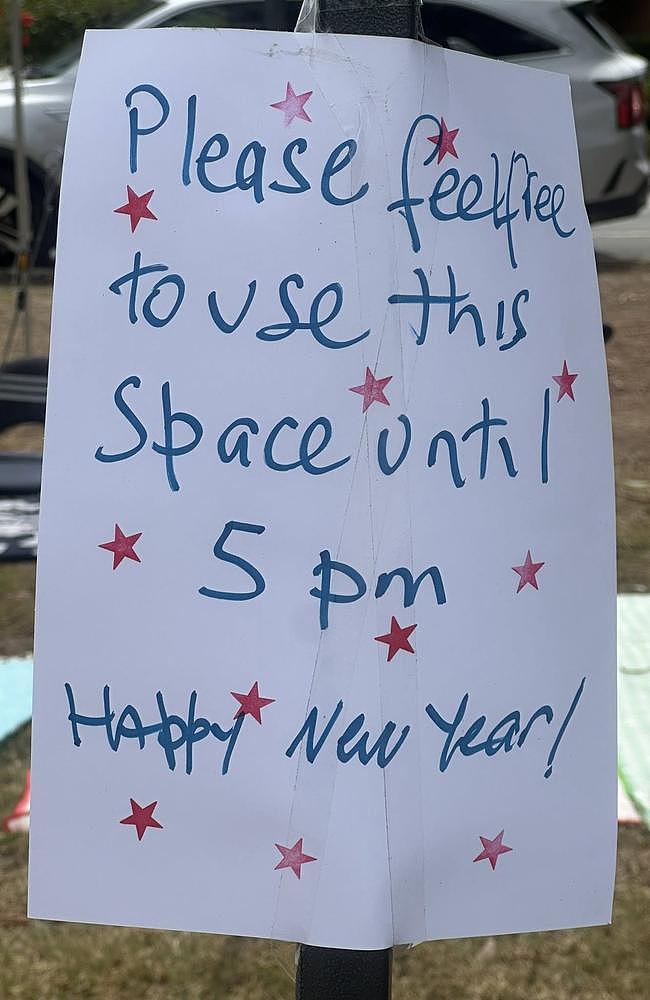 Please feel free
to use this
Space until
5 pm
Happy New Year!